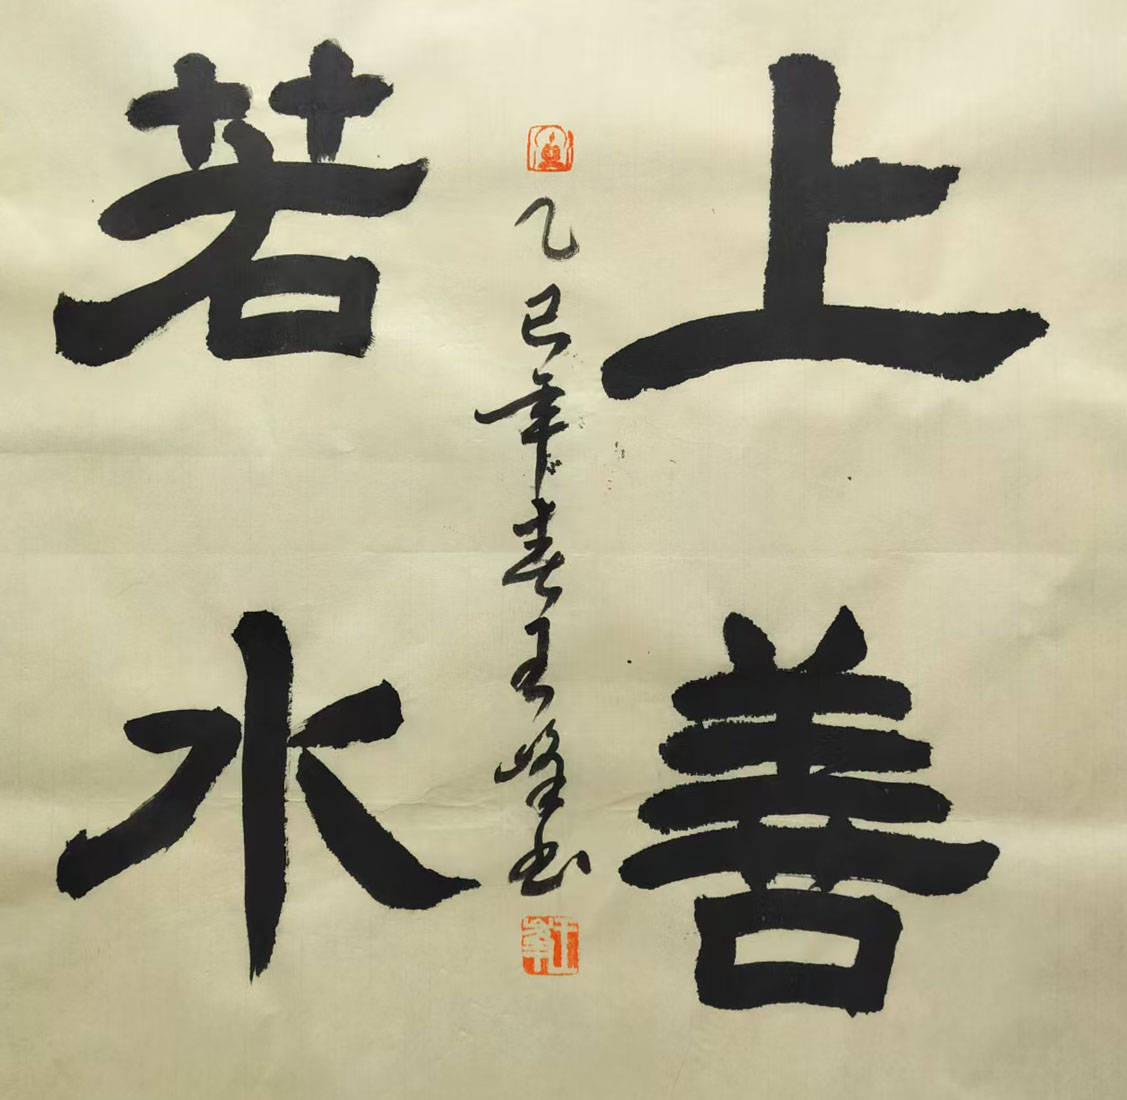 上善
若水
乙巳年春王峰书
王峰